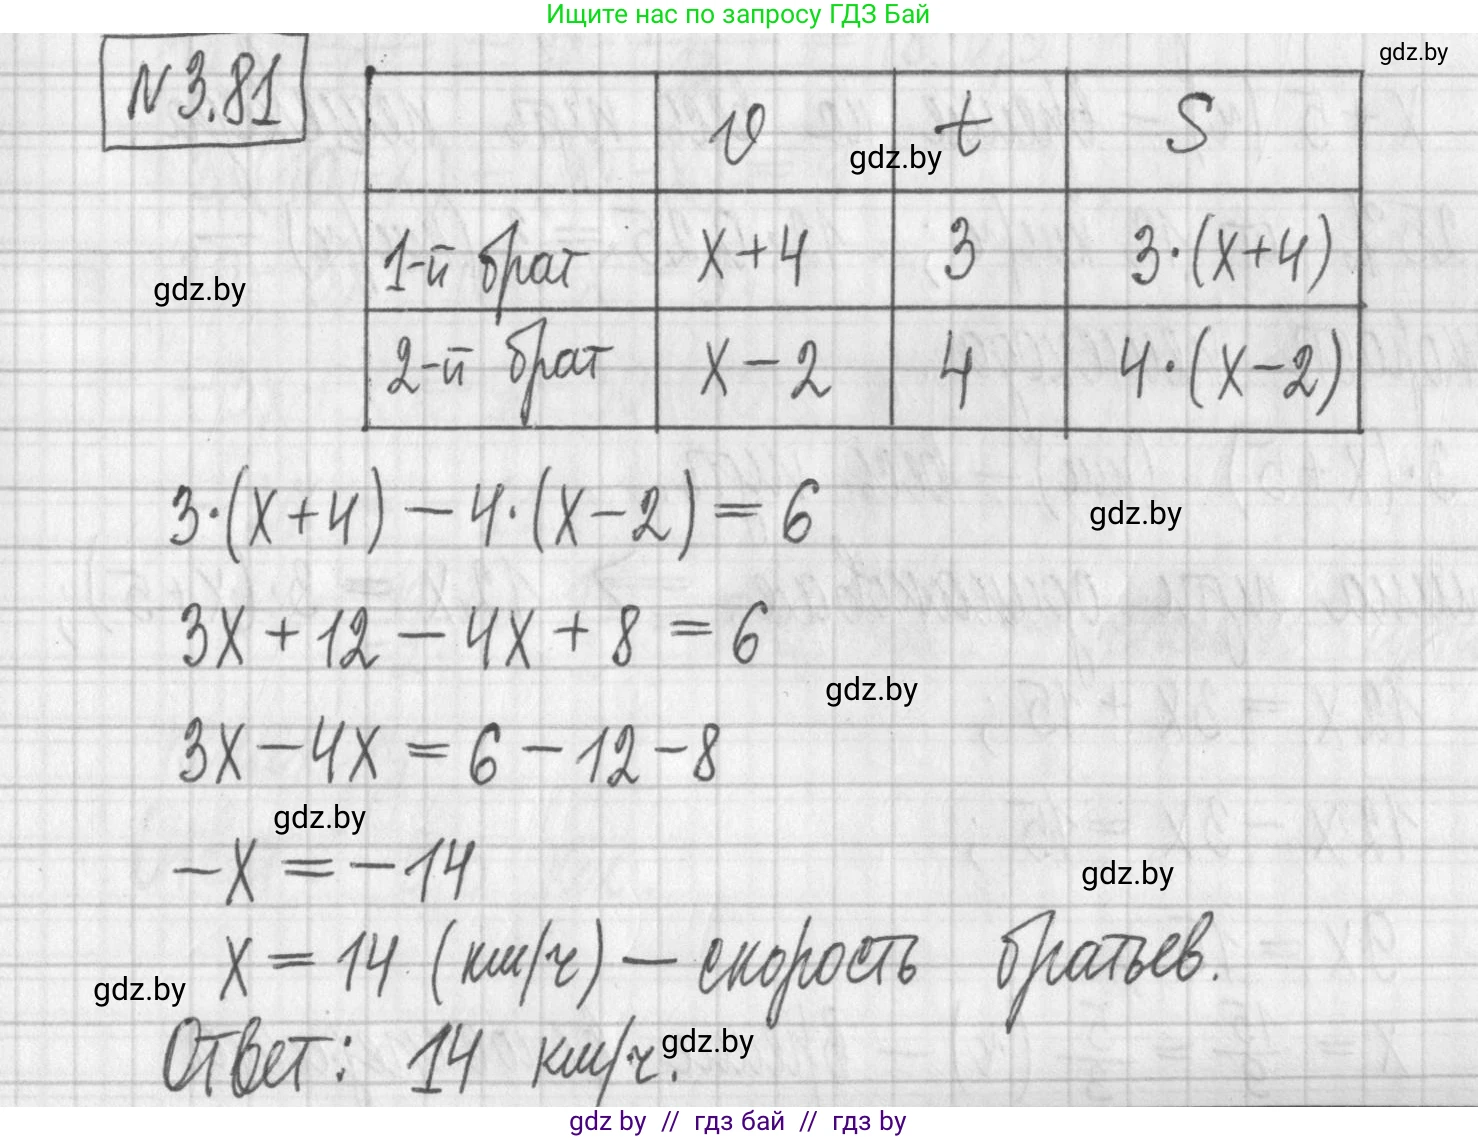 Ищите нас по запросу ГДЗ Бай
gdz.by
N 3.81
v t S
gdz.by
1-й брат x+4 3 3·(x+4)
gdz.by
2-й брат x-2 4 4·(x-2)
3·(x+4)-4·(x-2)=6
gdz.by
3x+12-4x+8=6
gdz.by
3x-4x=6-12-8
gdz.by
-x=-14
gdz.by
x=14 (км/ч) - скорость братьев.
gdz.by
Ответ: 14 км/ч.
gdz.by
gdz by // гдз бай // гдз by